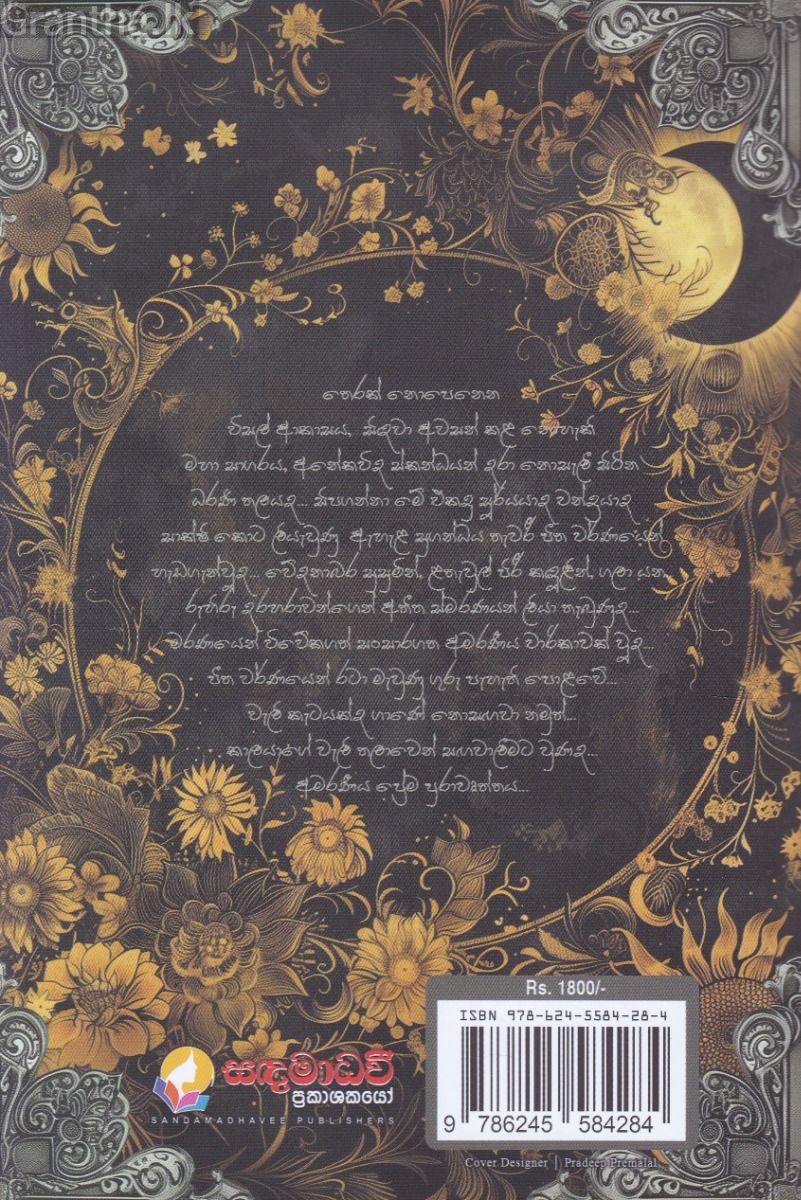 Grantha.lk
තෙරක් නොපෙනෙන
විසල් ආකාසය, සිඳුවා අවසන් කළ නොහැකි
මහා සාගරය, අනේකවිද ස්කන්ධයන් දරා නොසැලී සිටින
ධරණී තලයද... සිපගන්නා මේ එකදු සූර්යයාද චන්ද්‍රයාද
සාක්ෂි කොට ලියැවුණු ඇහැළ සුගන්ධය තැවරී පීත වර්ණයෙන්
හැඩගැන්වූද... වේදනාබර සුසුමින්, ළතැවුල් පිරි කඳුළින්, ගලා යන
රුහිරු දරහරාවන්ගෙන් අතීත ස්මරණයන් ලියා තැබුණුද...
මරණයෙන් විවේකගත් සංසාරගත අමරණීය චාරිකාවක් වූද...
පීත වර්ණයෙන් රටා මැවුණු ගුරු පැහැති පොළවේ...
වැලි කැටයක්ද ගාණේ නොසඟවා නමුත්...
කාලයාගේ වැලි තලාවෙන් සඟවාලීමට වුණද...
අමරණීය ප්‍රේම පුරාවෘත්තය...
Rs. 1800/-
ISBN 978-624-5584-28-4
9 786245 584284
සඳමාධවී
ප්‍රකාශකයෝ
SANDAMADHAVEE PUBLISHERS
Cover Designer | Pradeep Premalal